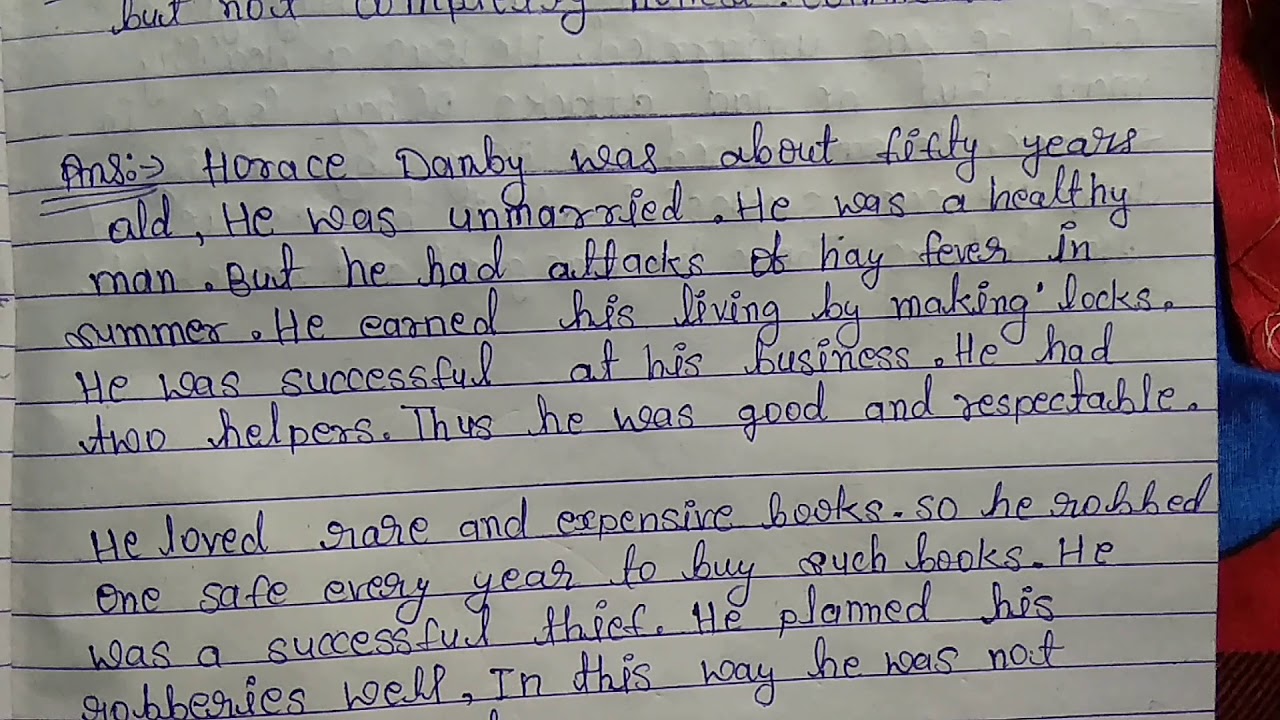 but not
Ans:→ Horace Danby was about fifty years
ald, He was unmarried. He was a healthy
man. But he had attacks of hay fever in
summer. He earned his living by making locks.
He was successful at his business. He had
two helpers. Thus he was good and respectable.
He loved rare and expensive books. so he robbed
one safe every year to buy such books. He
was a successful thief. He planned his
robberies well, In this way he was not